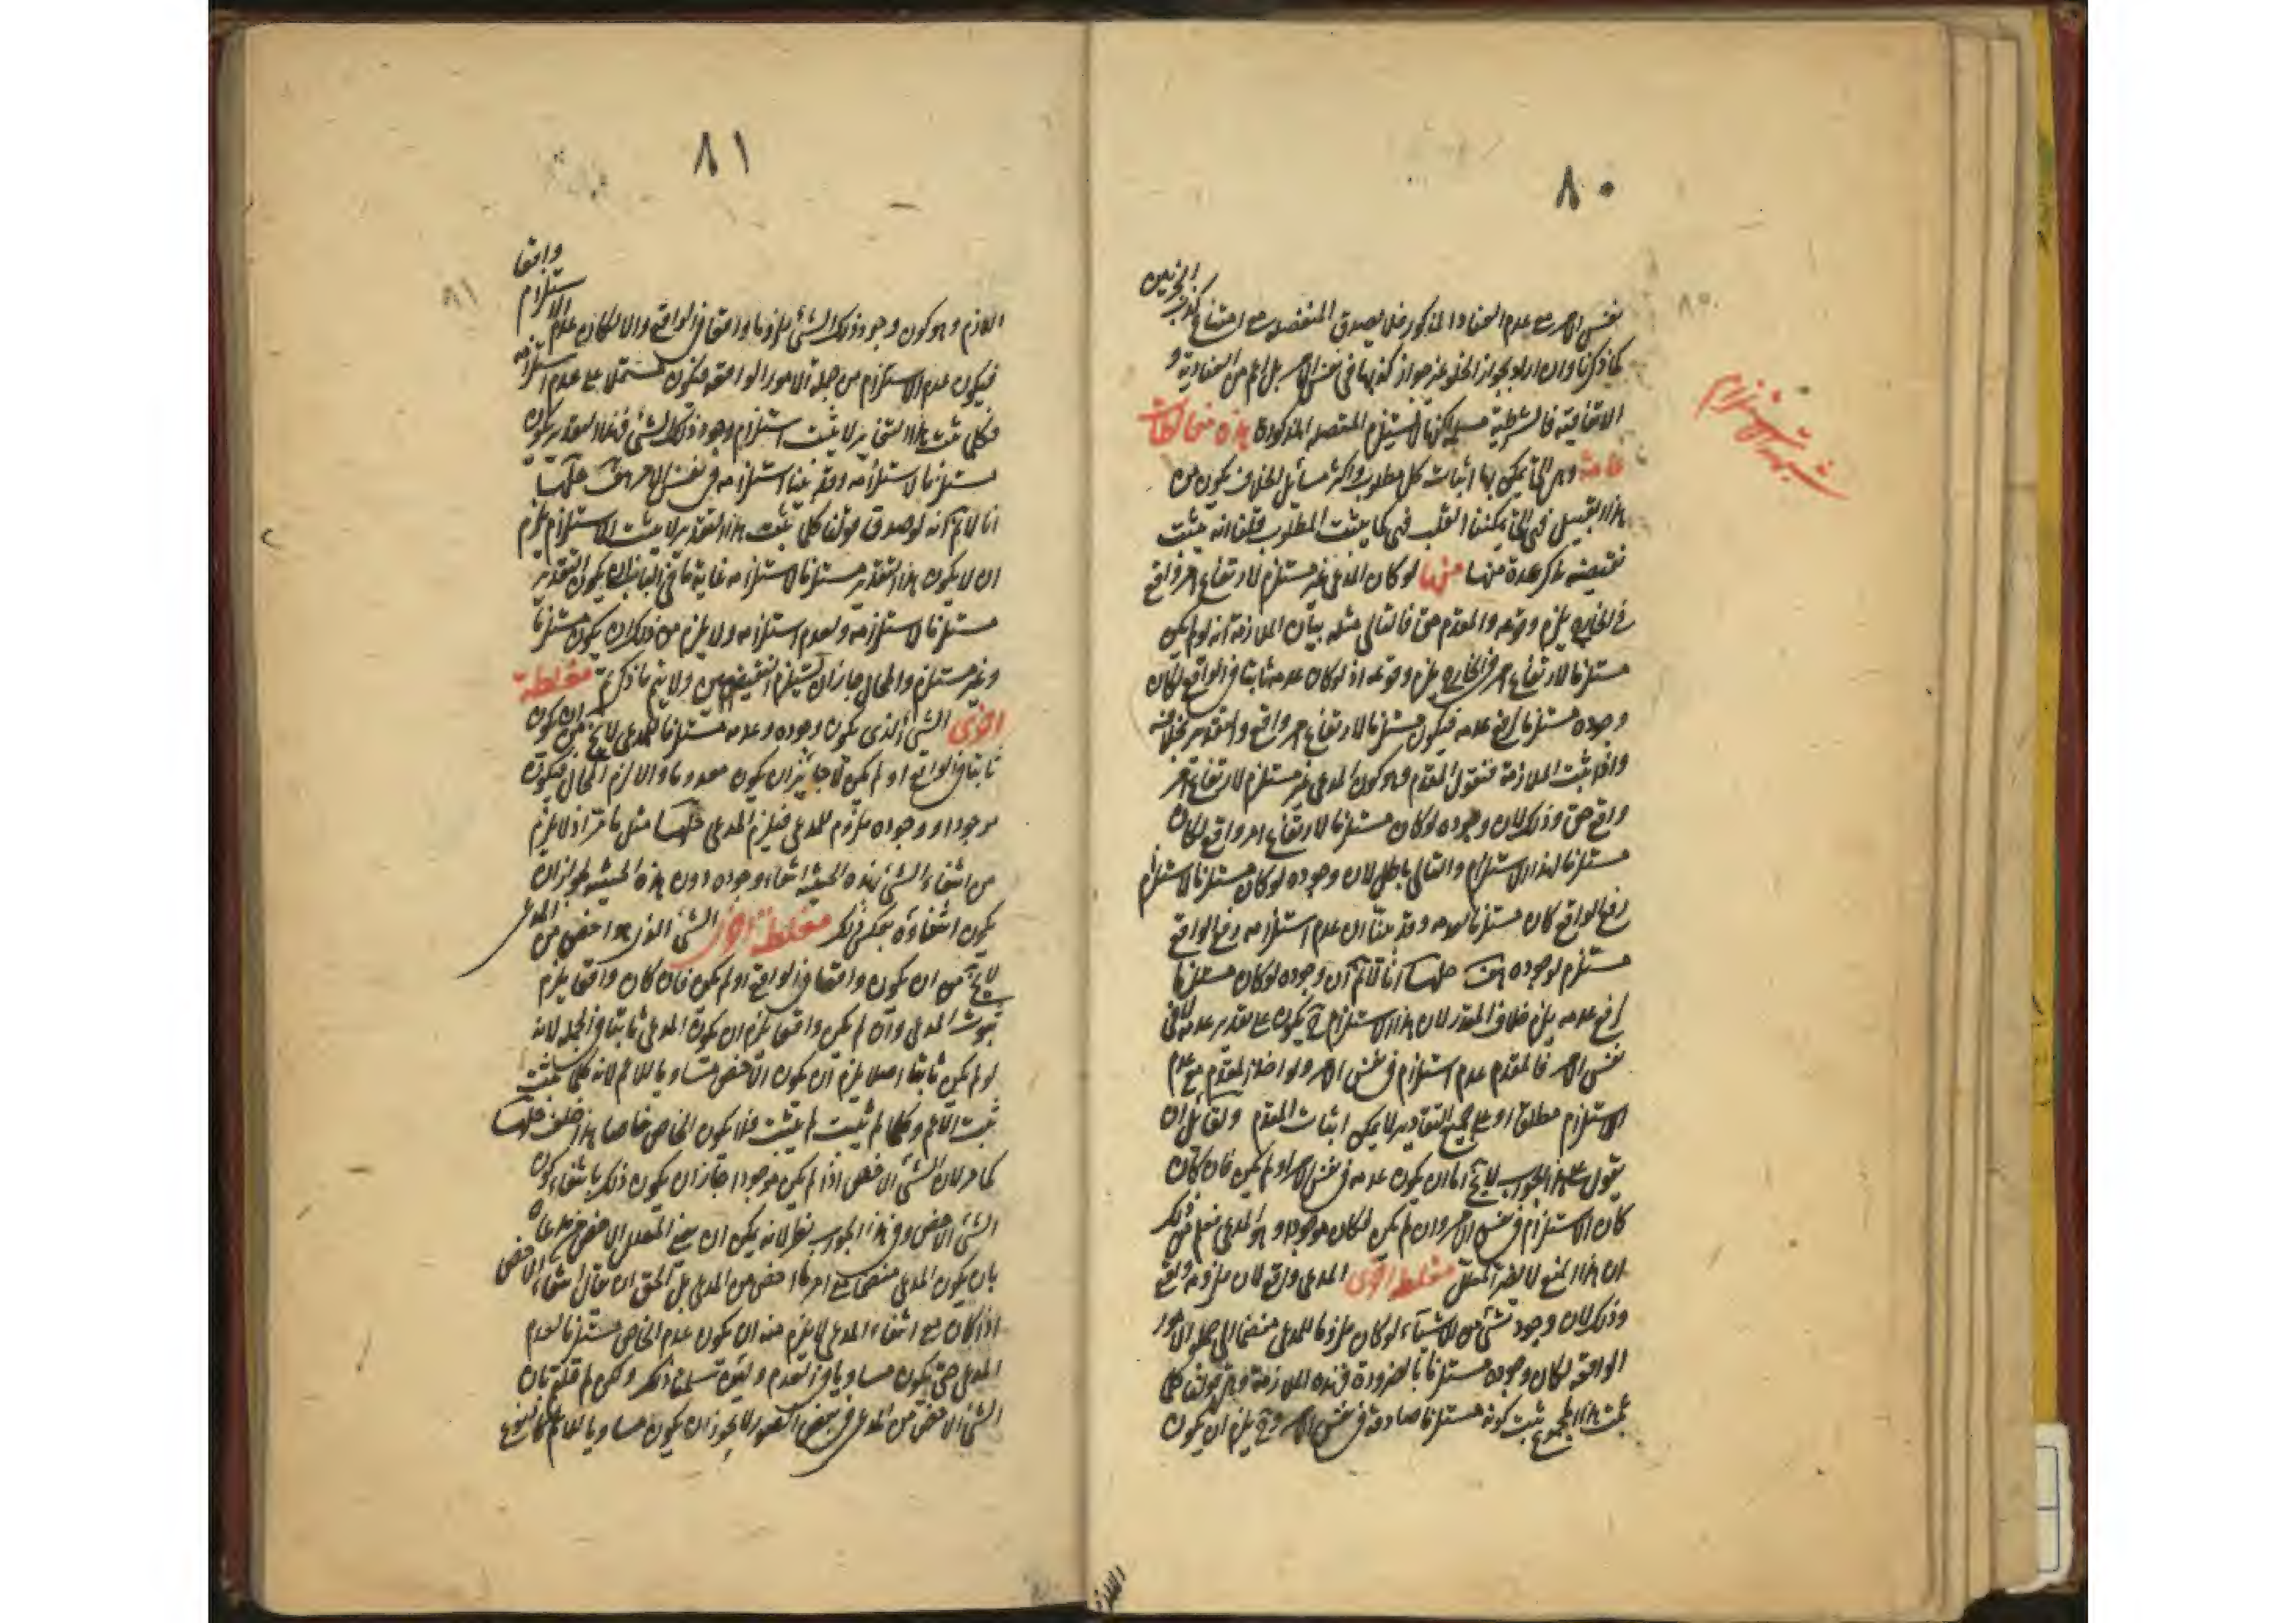 ٨٠
نفس الامر مع عدم العناد المذكور فلا يصدق المنفصلة مع امتناع كذب الجزئين
كما ذكرنا وان اراد بجواز الخلو عنه جواز كذبهما في نفس الامر بل اعم من العنادية و
الاتفاقية فالشرطية مسلم لكنها لا يستلزم المتصلة المذكورة هذه مغالطات
عامة وهي التي يمكن بها اثبات كل مطلوب واكثر مسائل الخلاف يكون من
هذا القبيل فهي التي يمكننا القلب فيها كما يثبت المطلوب قلنا انه يثبت
نقيضه نذكر عدة منها منها لو كان المدعى غير مستلزم لارتفاع امر واقع
في الخارج يلزم وقوعه والمقدم حق فالتالي مثله بيان الملازمة انه لو لم يكن
مستلزما لارتفاع امر في الخارج يلزم وقوعه اذ لو كان عدمه ثابتا في الواقع لكان
وجوده مستلزما لرفع عدمه فيكون مستلزما لارتفاع امر واقع والتقدير بخلافه
واذا ثبت الملازمة فنقول المقدم وهو كون المدعى غير مستلزم لارتفاع امر
واقع حق وذلك لان وجوده لو كان مستلزما لارتفاع امر واقع لكان
مستلزما لهذا الاستلزام والتالي باطل لان وجوده لو كان مستلزما لاستلزام
رفع الواقع كان مستلزما لعدمه وقد بينا ان عدم استلزامه رفع الواقع
مستلزم لوجوده هف حلها انا لانم ان وجوده لو كان مستلزما
لرفع عدمه يلزم خلاف المقدر لان هذا الاستلزام ح يكون على تقدير عدمه لا في
نفس الامر فالمقدم عدم استلزام في نفس الامر ولو اخذ المقدم مع عدم
الاستلزام مطلقا او على جميع التقادير لا يمكن اثبات المقدم ولقائل ان
يقول على هذا الجواب لا يخ اما ان يكون عدمه في نفس الامر او لم يكن فان كان
كان الاستلزام في نفس الامر وان لم يكن لكان موجودا وهو المدعى فعلم من ذلك
ان هذا المنع لا يضر المعلل مغلطة اخرى المدعى واقع لان ملزومه واقع
وذلك لان وجود شيء من الاشياء لو كان ملزوما للمدعى منضما الى جملة الامور
الواقعة لكان وجوده مستلزما بالضرورة فهذه الملازمة وهي قولنا كلما
ثبت هذا المجموع ثبت كونه مستلزما صادقة في نفس الامر وح يلزم ان يكون
اللازم
شبهة الاستلزام
٨١
اللازم وهو كون وجود ذلك الشيء ملزوما واقعا في الواقع والا لكان عدم الاستلزام واقعا
فيكون عدم الاستلزام من جملة الامور الواقعة فيكون مشتملا على عدم استلزامه
فكلما ثبت هذا التقدير لا يثبت استلزام وجود ذلك الشيء فهذا التقدير يكون
مستلزما لاستلزامه وقد بينا استلزامه في نفس الامر هف حلها
انا لانم انه لو صدق قولنا كلما يثبت هذا التقدير لا يثبت الاستلزام يلزم
ان لا يكون هذا التقدير مستلزما لاستلزامه غاية ما في الباب ان يكون التقدير
مستلزما لاستلزامه ولعدم استلزامه ولا يلزم من ذلك ان يكون مستلزما
وغير مستلزم والمحال جاز ان يستلزم النقيضين ولا يتم ما ذكرتم مغلطة
اخرى الشيء الذي يكون وجوده وعدمه مستلزما للمدعى لا يخ من ان يكون
ثابتا في الواقع او لم يكن لا جائز ان يكون معدوما والا لزم المحال فيكون
موجودا ووجوده ملزوم للمدعى فيلزم المدعى حلها مثل ما مر اذ لا يلزم
من انتفاء الشيء بهذه الحيثية انتفاء وجوده دون هذه الحيثية لجواز ان
يكون انتفاؤه بعكس ذلك مغلطة اخرى الشيء الذي هو اخص من المدعى
لا يخ من ان يكون واقعا في الواقع او لم يكن فان كان واقعا يلزم
ثبوت المدعى وان لم يكن واقعا يلزم ان يكون المدعى ثابتا في الجملة لانه
لو لم يكن ثابتا اصلا يلزم ان يكون الاخص مساويا للاعم لانه كلما يثبت
ثبت الاعم وكلما لم يثبت لم يثبت فلا يكون الخاص خاصا هذا خلف حلها
كما مر لان الشيء الاخص اذا لم يكن موجودا جاز ان يكون ذلك بانتفاء كون
الشيء الاخص وفي هذا الجواب نظر لانه يمكن ان يعين المعلل الاخص
بان يكون المدعى منضما مع امر ما اخص من المدعى بل الحق ان يقال انتفاء الاخص
اذا كان مع انتفاء المدعى لا يلزم منه ان يكون عدم الخاص مستلزما لعدم
المدعى حتى يكون مساويا في العدم ولئن سلمنا ذلك ولكن لم قلتم بان
الشيء الاخص من المدعى في بعض الصور لا يجوز ان يكون مساويا للعام